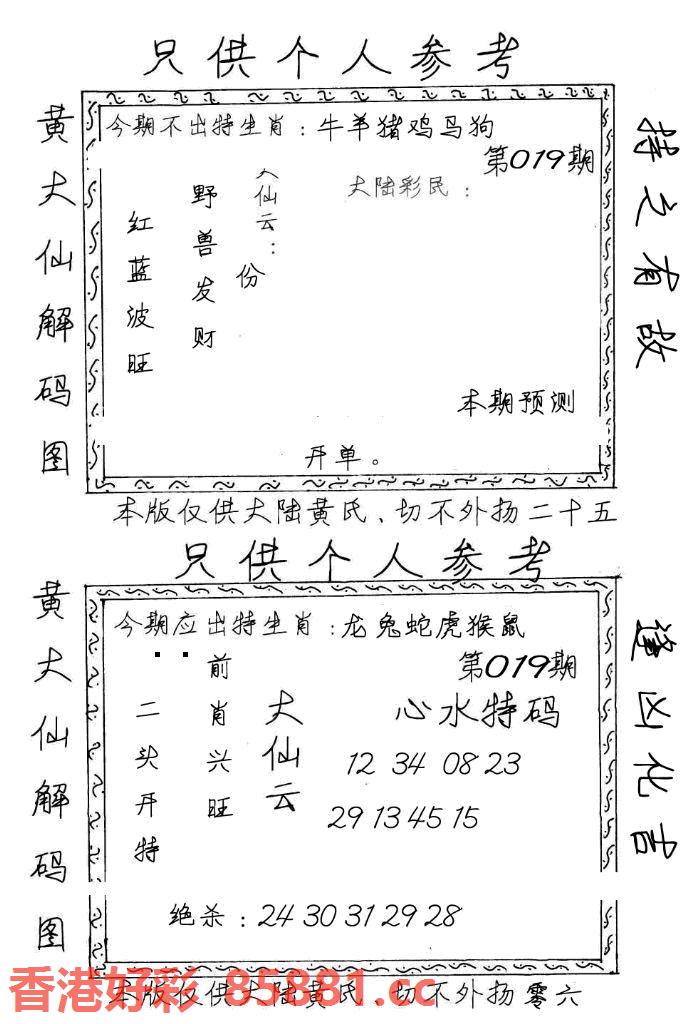 只供个人参考
黄大仙解码图
今期不出特生肖：牛羊猪鸡马狗
第019期
大陆彩民：
大仙云：
份
野兽发财
红蓝波旺
本期预测
开单。
持之有故
本版仅供大陆黄氏、切不外扬二十五
只供个人参考
黄大仙解码图
今期应出特生肖：龙兔蛇虎猴鼠
第019期
心水特码
大仙云
前肖兴旺
二头开特
12 34 08 23
29 13 45 15
绝杀：24 30 31 29 28
逢凶化吉
本版仅供大陆黄氏、切不外扬零六
香港好彩 85881.cc